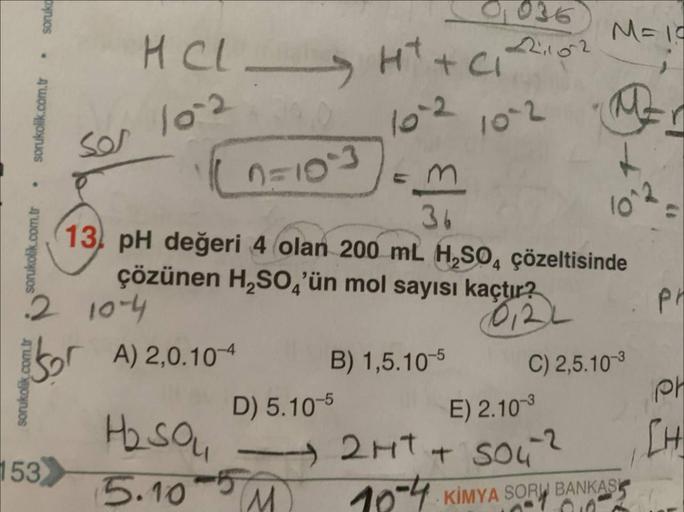 0,036
HCl → H⁺ + Cl⁻
M=10
2.10⁻²
10⁻² 10⁻² 10⁻²
sor
n=10⁻³ = m
36
10⁻² =
13. pH değeri 4 olan 200 mL H₂SO₄ çözeltisinde
çözünen H₂SO₄'ün mol sayısı kaçtır?
.2 10⁻⁴ 0,2L
Sor
A) 2,0.10⁻⁴ B) 1,5.10⁻⁵ C) 2,5.10⁻³
D) 5.10⁻⁵ E) 2.10⁻³
H₂SO₄ → 2H⁺ + SO₄⁻²
[H
5.10⁻⁵ M 10⁻⁴
153 KİMYA SORU BANKASI
sorukolik.com.tr • sorukolik.com.tr • sorukolik.com.tr